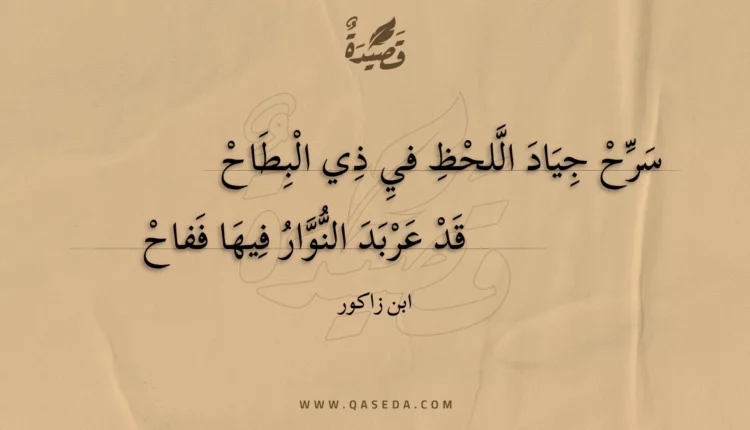 قَصِيْدَةٌ
سَرِّحْ جِيَادَ اللَّحْظِ فيِ ذِي الْبِطَاحْ
قَدْ عَرْبَدَ النُّوَّارُ فِيهَا فَفاحْ
ابن زاكور
WWW.QASEDA.COM